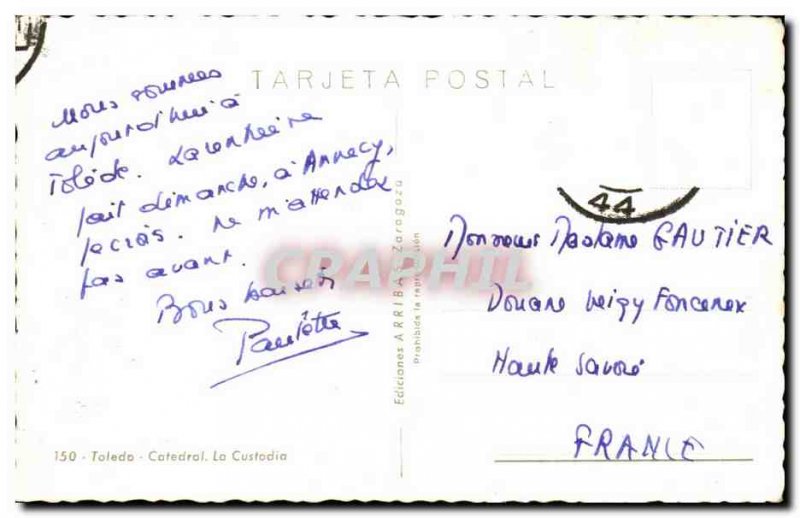 TARJETA POSTAL
Nous sommes
aujourd'hui à
Tolède. La rentrée
fait dimanche, à Annecy,
je crois. Ne m'attendez
pas avant.
Bons baisers
Paulette
150 - Toledo - Catedral. La Custodia
Ediciones ARRIBAS Zaragoza
Prohibida la reproducción
CRAPHIL
44
Monsieur Madame GAUTIER
Douane Veigy Foncenex
Haute Savoie
FRANCE